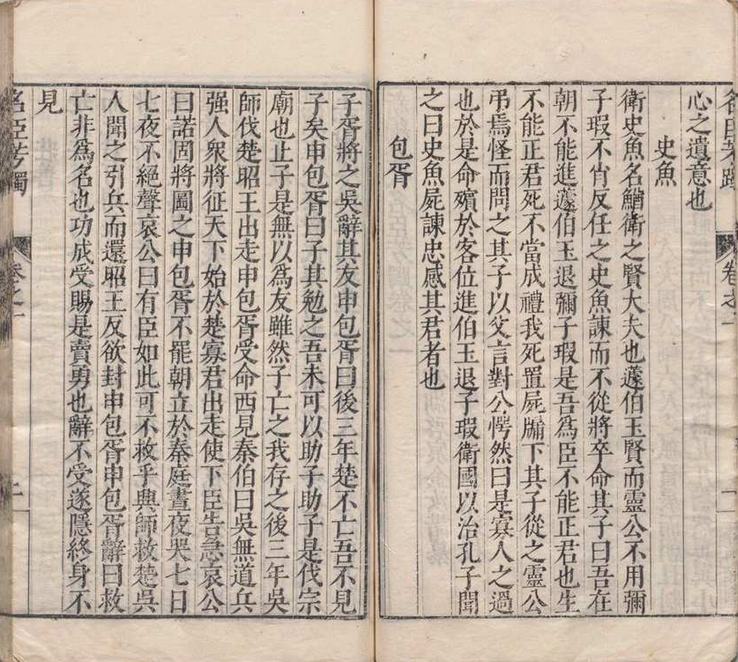 心之遺意也
史魚
衛史魚名鰌衛之賢大夫也蘧伯玉賢而靈公不用彌
子瑕不肖反任之史魚諫而不從將卒命其子曰吾在
朝不能進蘧伯玉退彌子瑕是吾為臣不能正君也生
不能正君死不當成禮我死置屍牖下其子從之靈公
弔焉怪而問之其子以父言對公愕然曰是寡人之過
也於是命殯於客位進伯玉退子瑕衛國以治孔子聞
之曰史魚屍諫忠感其君者也
包胥
子胥將之吳辭其友申包胥曰後三年楚不亡吾不見
子矣申包胥曰子其勉之吾未可以助子助子是伐宗
廟也止子是無以為友雖然子亡之我存之後三年吳
師伐楚昭王出走申包胥受命西見秦伯曰吳無道兵
强人衆將征天下始於楚寡君出走使下臣告急哀公
曰諾固將圖之申包胥不罷朝立於秦庭晝夜哭七日
七夜不絕聲哀公曰有臣如此可不救乎興師救楚吳
人聞之引兵而還昭王反欲封申包胥申包胥辭曰救
亡非為名也功成受賜是賣勇也辭不受遂隱終身不
見
名臣芳躅
卷之一
二